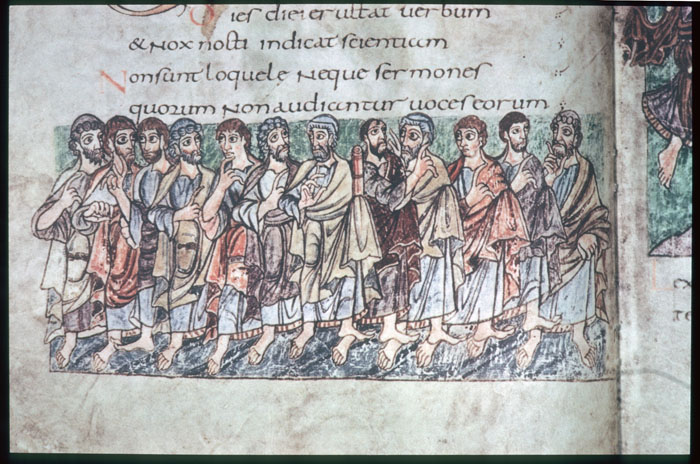 Dies diei eructat uerbum
& nox nocti indicat scientiam
Non sunt loquele neque sermones
quorum non audiantur uoces eorum